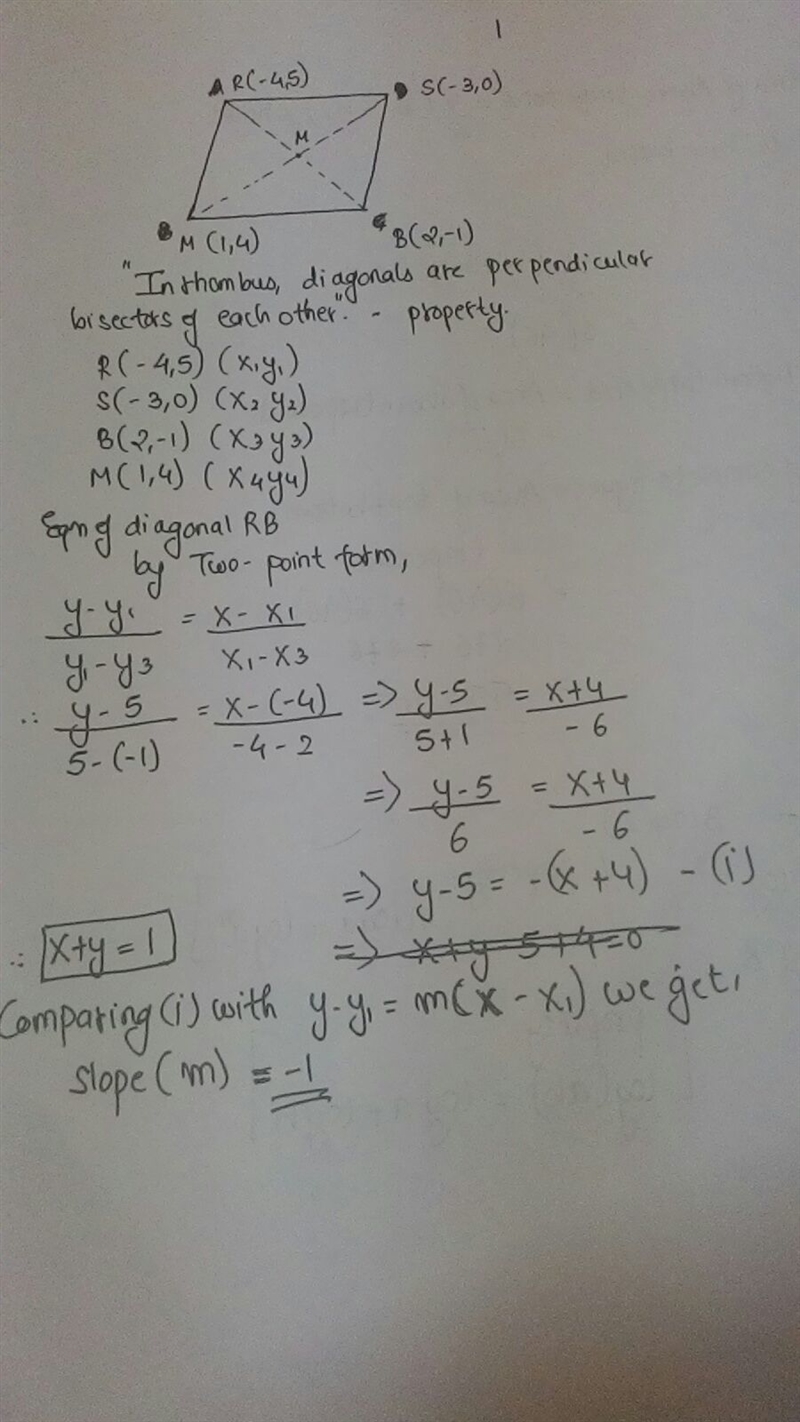 1
A R(-4,5)
D S(-3,0)
M
B M(1,4)
C B(2,-1)
"In rhombus, diagonals are perpendicular
bisectors of each other". - property.
R(-4,5) (x₁y₁)
S(-3,0) (x₂ y₂)
B(2,-1) (x₃ y₃)
M(1,4) (x₄y₄)
Eqn of diagonal RB
by Two-point form,
y-y₁ / y₁-y₃ = x-x₁ / x₁-x₃
∴ y-5 / 5-(-1) = x-(-4) / -4-2 => y-5 / 5+1 = x+4 / -6
=> y-5 / 6 = x+4 / -6
=> y-5 = -(x+4) - (i)
=> x+y-5+4=0
∴ x+y=1
Comparing (i) with y-y₁ = m(x-x₁) we get,
slope(m) = -1